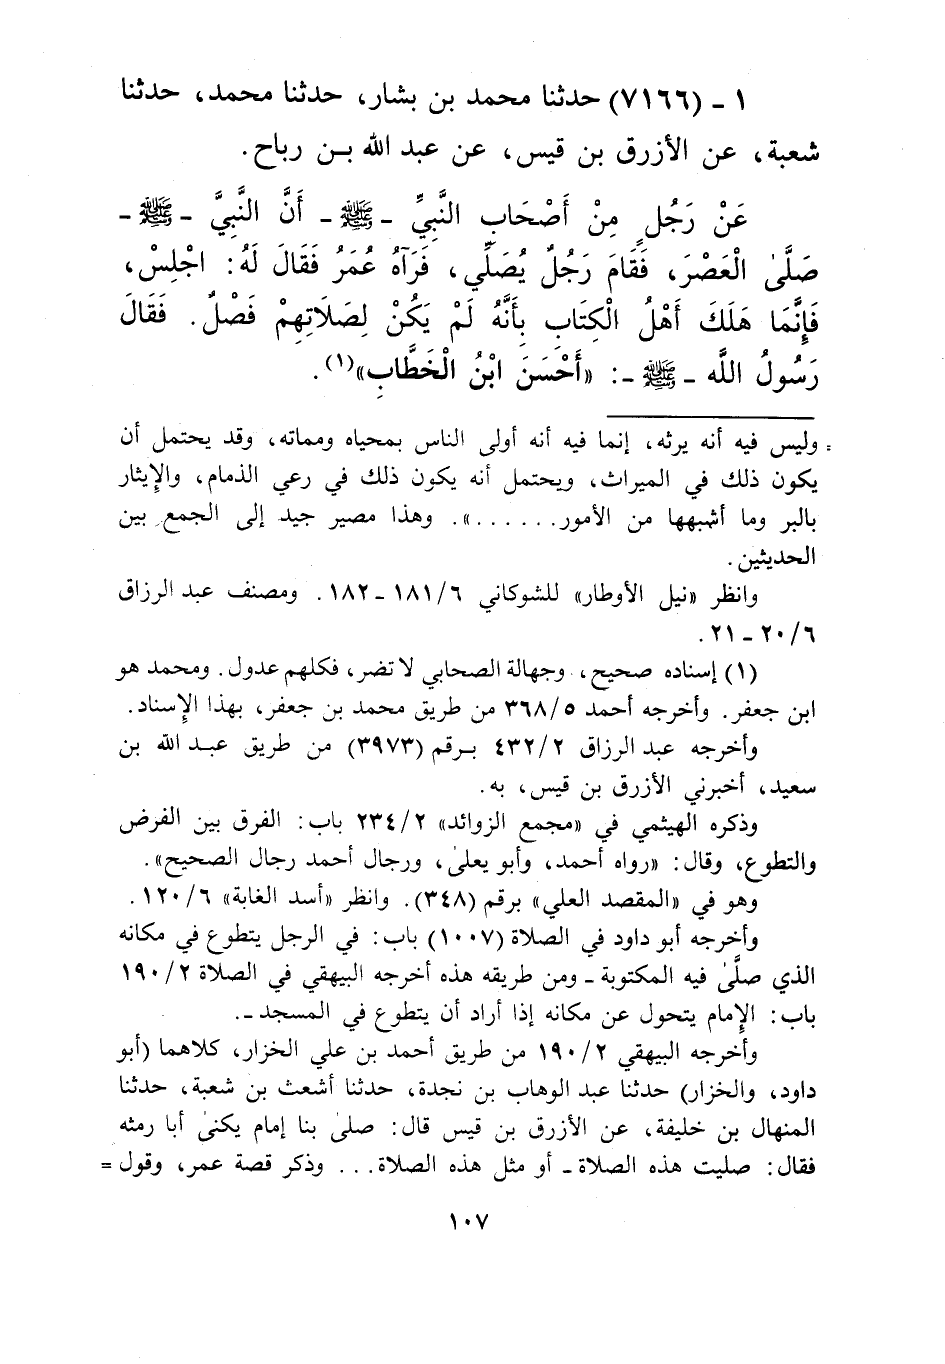 ١ - (٧١٦٦) حدثنا محمد بن بشار، حدثنا محمد، حدثنا
شعبة، عن الأزرق بن قيس، عن عبد الله بـن رباح.
عَنْ رَجُلٍ مِنْ أَصْحَابِ النَّبِيِّ - ﷺ - أَنَّ النَّبِيَّ - ﷺ -
صَلَّىٰ الْعَصْرَ، فَقَامَ رَجُلٌ يُصَلِّي، فَرَآهُ عُمَرُ فَقَالَ لَهُ: اجْلِسْ،
فَإِنَّمَا هَلَكَ أَهْلُ الْكِتَابِ بِأَنَّهُ لَمْ يَكُنْ لِصَلَاتِهِمْ فَصْلٌ. فَقَالَ
رَسُولُ اللَّه - ﷺ -: «أَحْسَنَ ابْنُ الْخَطَّابِ»(١).
= وليس فيه أنه يرثه، إنما فيه أنه أولى الناس بمحياه ومماته، وقد يحتمل أن
يكون ذلك في الميراث، ويحتمل أنه يكون ذلك في رعي الذمام، والإيثار
بالبر وما أشبهها من الأمور.......». وهذا مصير جيد إلى الجمع بين
الحديثين.
وانظر «نيل الأوطار» للشوكاني ٦/ ١٨١ - ١٨٢. ومصنف عبد الرزاق
٦/ ٢٠ - ٢١.
(١) إسناده صحيح، وجهالة الصحابي لا تضر، فكلهم عدول. ومحمد هو
ابن جعفر. وأخرجه أحمد ٥/ ٣٦٨ من طريق محمد بن جعفر، بهذا الإسناد.
وأخرجه عبد الرزاق ٢/ ٤٣٢ بـرقم (٣٩٧٣) من طريق عبـد الله بن
سعيد، أخبرني الأزرق بن قيس، به.
وذكره الهيثمي في «مجمع الزوائد» ٢/ ٢٣٤ باب: الفرق بين الفرض
والتطوع، وقال: «رواه أحمد، وأبو يعلىٰ، ورجال أحمد رجال الصحيح».
وهو في «المقصد العلي» برقم (٣٤٨). وانظر «أسد الغابة» ٦/ ١٢٠.
وأخرجه أبو داود في الصلاة (١٠٠٧) باب: في الرجل يتطوع في مكانه
الذي صلَّىٰ فيه المكتوبة - ومن طريقه هذه أخرجه البيهقي في الصلاة ٢/ ١٩٠
باب: الإمام يتحول عن مكانه إذا أراد أن يتطوع في المسجد -.
وأخرجه البيهقي ٢/ ١٩٠ من طريق أحمد بن علي الخزار، كلاهما (أبو
داود، والخزار) حدثنا عبد الوهاب بن نجدة، حدثنا أشعث بن شعبة، حدثنا
المنهال بن خليفة، عن الأزرق بن قيس قال: صلىٰ بنا إمام يكنىٰ أبا رمثه
فقال: صليت هذه الصلاة - أو مثل هذه الصلاة... وذكر قصة عمر، وقول =
١٠٧